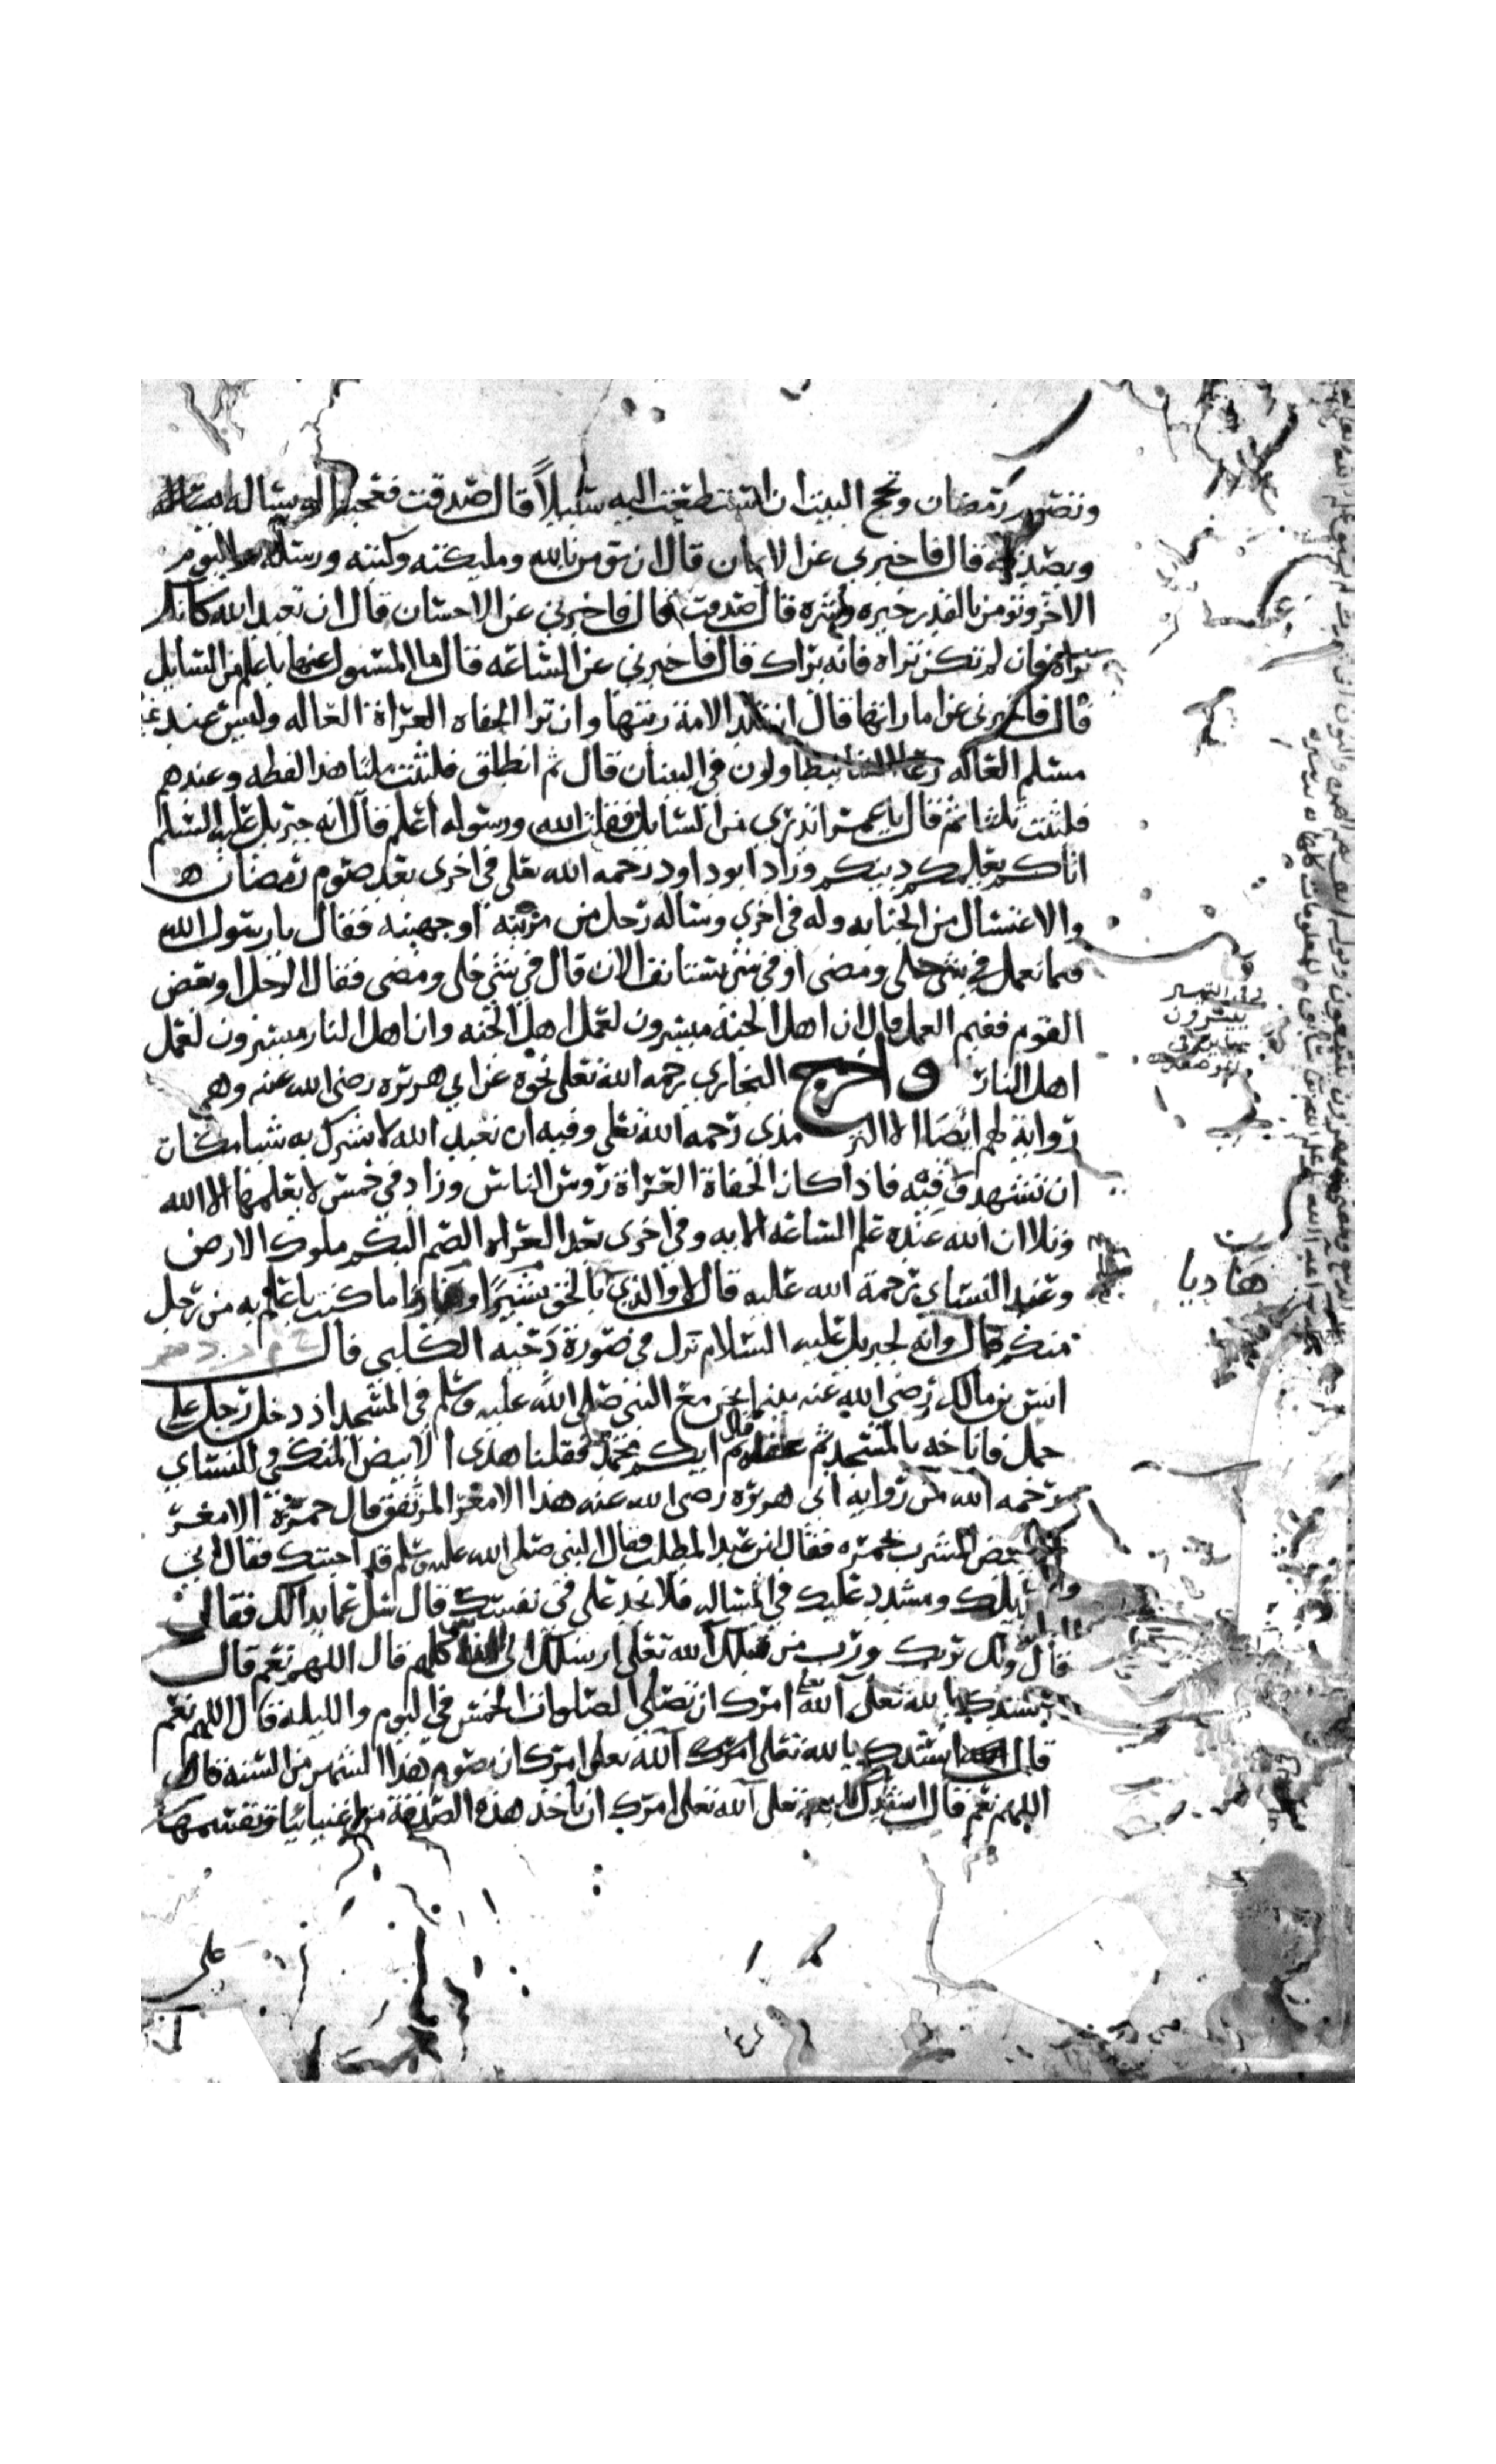 وتصوم رمضان وتحج البيت ان استطعت اليه سبيلاً قال صدقت فعجبنا له يساله
ويصدقه قال فاخبرني عن الايمان قال ان تومن بالله ومليكته وكتبه ورسله واليوم
الاخر وتومن بالقدر خيره وشره قال صدقت قال فاخبرني عن الاحسان قال ان تعبد الله كانك
تراه فان لم تكن تراه فانه يراك قال فاخبرني عن الساعه قال ما المسئول عنها باعلم من السايل
قال فاخبرني عن اماراتها قال ان تلد الامة ربتها وان ترا الحفاه العراة العاله وليس عند
مسلم العاله رعا الشا يتطاولون في البنيان قال ثم انطلق فلبثت مليا هذا لفظه وعندهم
فلبثت ثلثا ثم قال يا عمر اتدري من السايل فقلت الله ورسوله اعلم قال انه جبريل عليه السلم
اتاكم يعلمكم دينكم وزاد ابو داود رحمه الله تعلى في اخرى بعد صوم رمضان
والاغتسال من الجنابه وله في اخري وساله رجل من مزينه او جهينه فقال يا رسول الله
فيما نعمل في شي خلى ومضى او في شي يستانف الان قال في شي خلى ومضى فقال الرجل او بعض
القوم ففيم العمل قال ان اهل الجنة ميسرون لعمل اهل الجنه وان اهل النار ميسرون لعمل
اهل النار واخرج البخاري رحمه الله تعلى نحوه عن ابي هريره رضي الله عنه وهي
رواية لهم ايضا الا الترمذي رحمه الله تعلى وفيه ان تعبد الله لا تشرك به شيا مكان
ان تشهد وفيه فاذا كان الحفاة العراة روس الناس وزاد في خمس لا يعلمها الا الله
وتلا ان الله عنده علم الساعه الايه وفي اخرى بعد العراه الصم البكم ملوك الارض
وعند النساي رحمة الله عليه قال لا والذي بالحق بشيرا ما كنت باعلم به من رجل
منكم قال وانه لجبريل عليه السلام نزل في صورة دحيه الكلبي قال
انس بن مالك رضي الله عنه بينما نحن مع النبي صلى الله عليه وسلم في المسجد اذ دخل رجل على
جمل فاناخه بالمسجد ثم عقله ثم قال ايكم محمد فقلنا هذى الابيض المتكي وللنساي
رحمه الله من رواية ابي هريره رضي الله عنه هذا الامغر المرتفق قال حمزة الامغر
الابيض المشرب بحمره فقال ابن عبد المطلب فقال النبي صلى الله عليه وسلم قد اجبتك فقال اني
سايلك ومشدد عليك في المساله فلا تجد علي في نفسك قال سل عما بدا لك فقال
قال وبك بربك ورب من قبلك آلله تعلى ارسلك الى الناس كلهم قال اللهم نعم قال
انشدك بالله تعلى آلله امرك ان تصلي الصلوات الخمس في اليوم والليله قال اللهم نعم
قال انشدك بالله تعلى آلله تعلى امرك ان تصوم هذا الشهر من السنه قال
اللهم نعم قال انشدك بالله تعلى آلله تعلى امرك ان تاخذ هذه الصدقة من اغنيائنا وتقسمها
على
ييسرون
هاديا